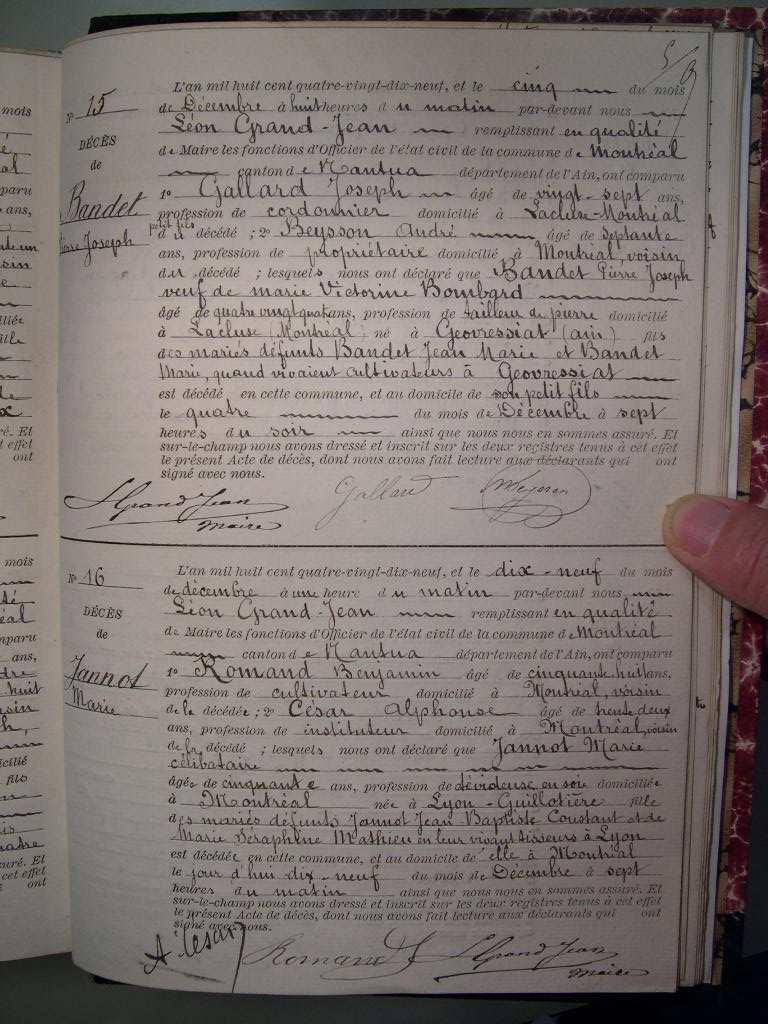 L'an mil huit cent quatre-vingt-dix-neuf, et le cinq du mois
de Décembre à huit heures d u matin par-devant nous
Léon Grand-Jean remplissant en qualité
de Maire les fonctions d'Officier de l'état civil de la commune de Montréal
canton d e Nantua département de l'Ain, ont comparu
1o Gallard Joseph âgé de vingt-sept ans,
profession de cordonnier domicilié à Lacluse-Montréal
petit fils
d u décédé ; 2o Beysson André âgé de septante
ans, profession de propriétaire domicilié à Montréal, voisin
du décédé ; lesquels nous ont déclaré que Bandet Pierre Joseph
veuf de marie Victorine Bombard
âgé de quatre vingt quat ans, profession de tailleur de pierre domicilié
à Lacluse (Montréal) né à Geovressiat (ain) fils
des mariés défunts Bandet Jean Marie et Bandet
Marie, quand vivaient cultivateurs à Geovressiat
est décédé en cette commune, et au domicile de son petit fils
le quatre du mois de Décembre à sept
heures du soir ainsi que nous nous en sommes assuré. Et
sur-le-champ nous avons dressé et inscrit sur les deux registres tenus à cet effet
le présent Acte de décès, dont nous avons fait lecture aux déclarants qui ont
signé avec nous.
No 15
DÉCÈS
de
Bandet
Pierre Joseph
L Grand Jean
Maire
Gallard
L'an mil huit cent quatre-vingt-dix-neuf, et le dix-neuf du mois
de décembre à une heure d u matin par-devant nous
Léon Grand-Jean remplissant en qualité
de Maire les fonctions d'Officier de l'état civil de la commune de Montréal
canton d e Nantua département de l'Ain, ont comparu
1o Romand Benjamin âgé de cinquante huit ans,
profession de cultivateur domicilié à Montréal, voisin
de la décédée ; 2o César Alphonse âgé de trente deux
ans, profession de instituteur domicilié à Montréal, voisin
de la décédé ; lesquels nous ont déclaré que Jannot Marie
célibataire
âgée de cinquante ans, profession de dévideuse en soie domiciliée
à Montréal née à Lyon-Guillotière fille
des mariés défunts Jannot Jean Baptiste Constant et de
Marie Séraphine Mathieu en leur vivant tisseurs à Lyon
est décédée en cette commune, et au domicile de elle à Montréal
le jour d'hui dix-neuf du mois de Décembre à sept
heures du matin ainsi que nous nous en sommes assuré. Et
sur-le-champ nous avons dressé et inscrit sur les deux registres tenus à cet effet
le présent Acte de décès, dont nous avons fait lecture aux déclarants qui ont
signé avec nous.
No 16
DÉCÈS
de
Jannot
Marie
A César
Romand
L Grand Jean
Maire